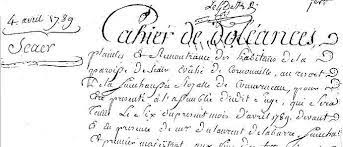 4 avril 1789
Scaer
Cahier de doléances,
plaintes & Remontrances des habitans de la
paroisse de Scaer Evêché de Cornouaille, au ressort
De la Sénéchaussée Royalle de Concarneau, pour
être présenté à l'assemblée dudit Siège, qui sera
Tenue Le Six du présent mois d'avril 1789. devant
premier